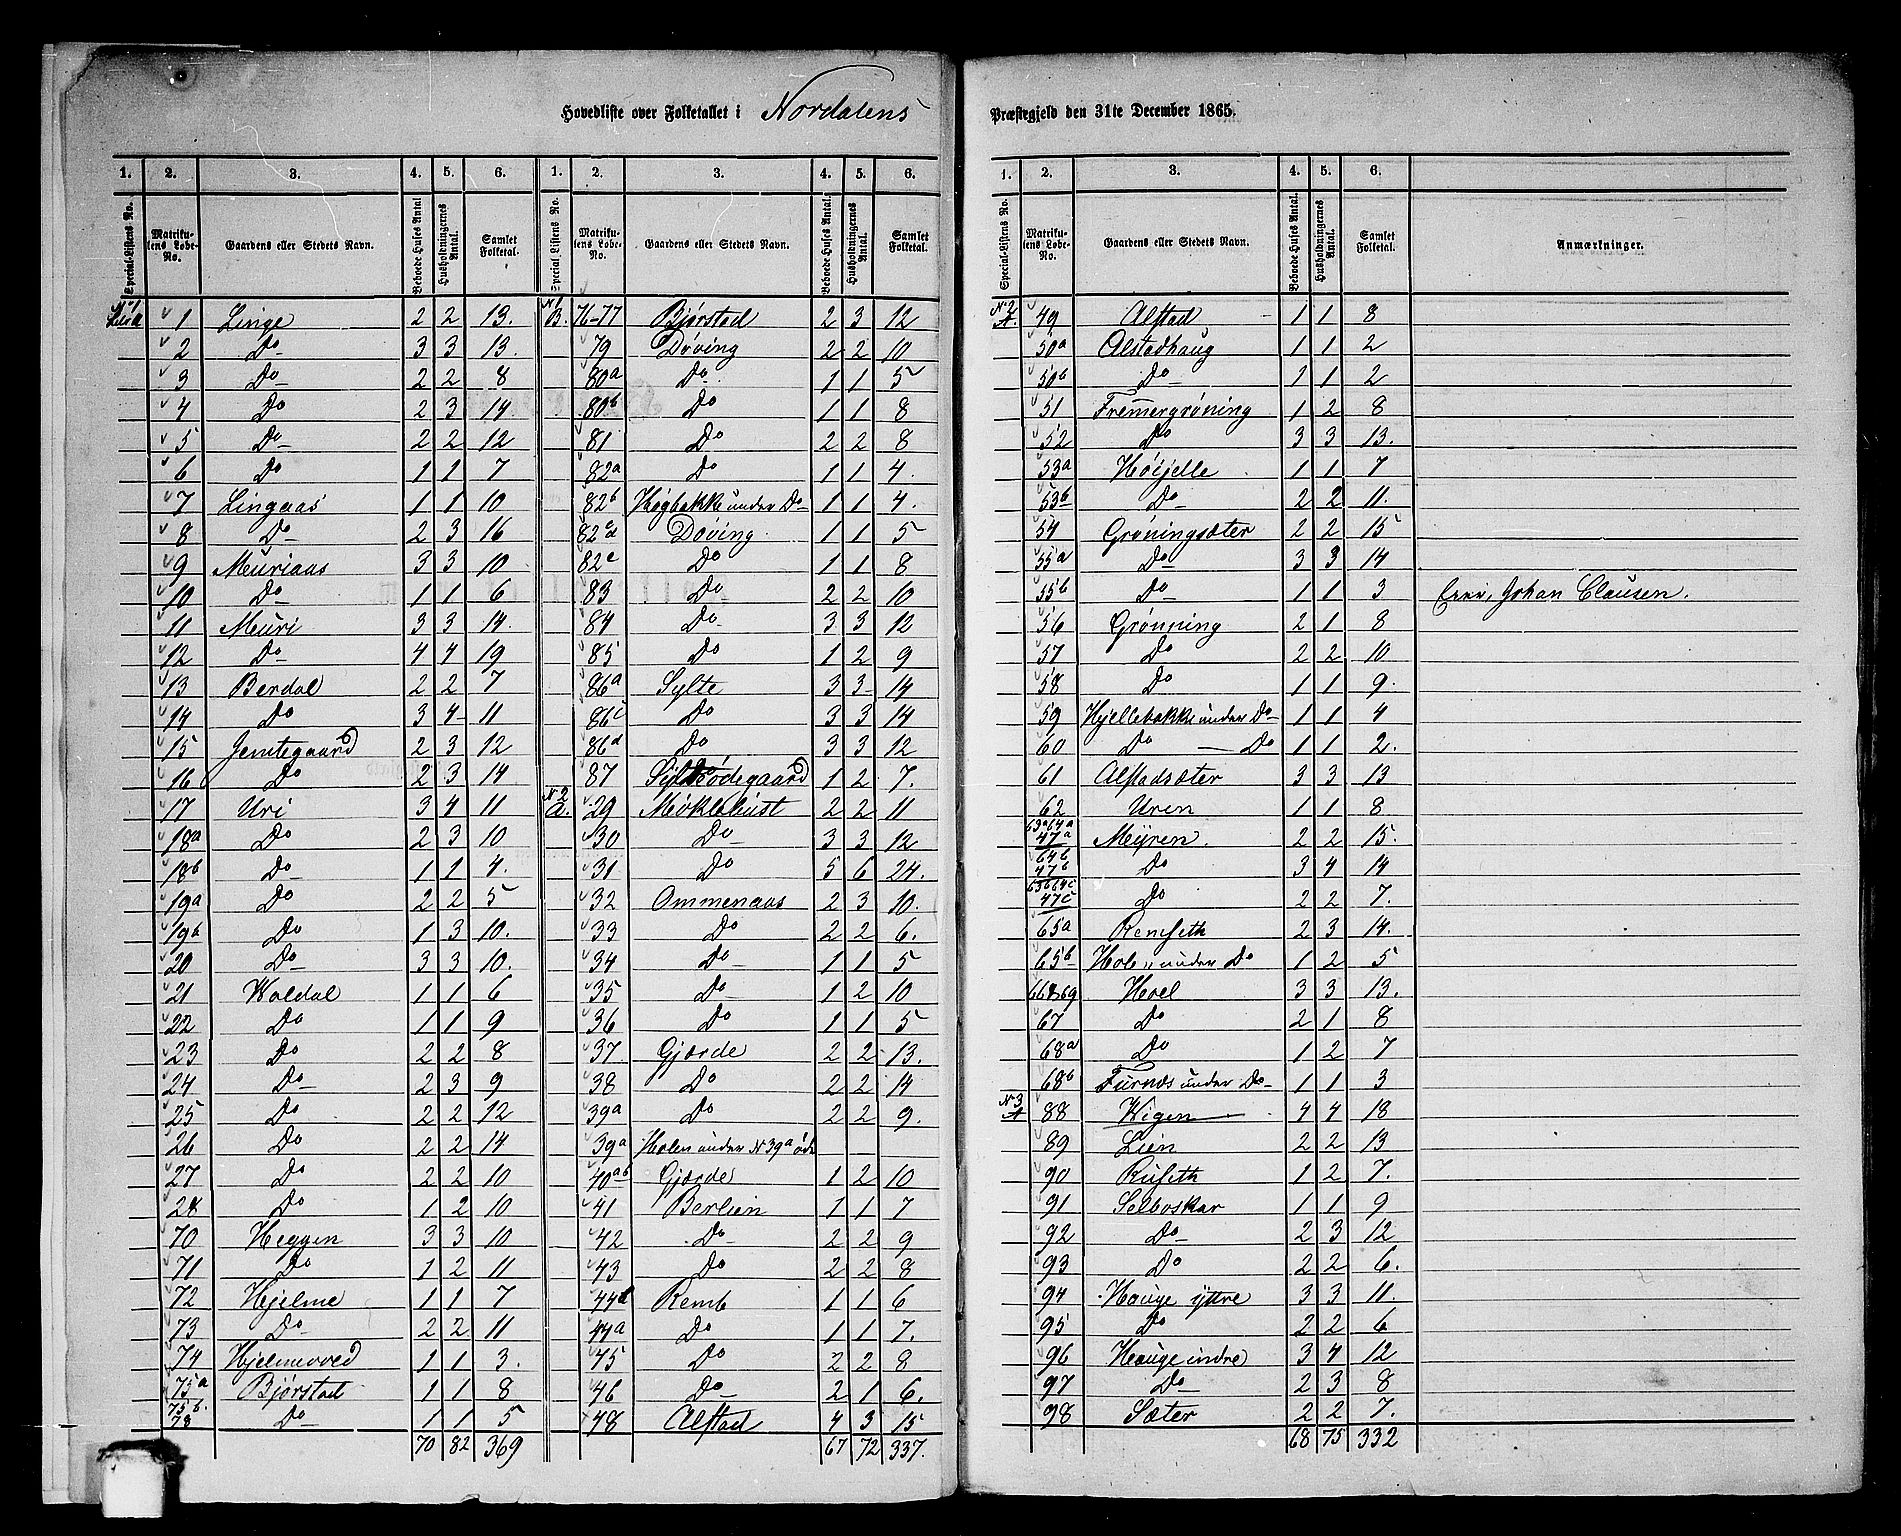 Hovedliste over Folketallet i Nordalens Præstegjeld den 31te December 1865.
1. 2. 3. 4. 5. 6. 1. 2. 3. 4. 5. 6.
Special-Listens No. Matrikulens Løbe-No. Gaardens eller Stedets Navn. Beboede Huses Antal Husholdningernes Antal. Samlet Folketal. Special Listens No. Matrikulens Løbe-No. Gaardens eller Stedets Navn. Beboede Huses Antal. Husholdningernes Antal. Samlet Folketal.
1 Linge 2 2 13.
2 Do 3 3 13.
3 Do 2 2 8
4 Do 2 3 14
5 Do 2 2 12
6 Do 1 1 7
7 Lingaas 1 1 10
8 Do 2 3 16
9 Muriaas 3 3 10
10 Do 1 1 6
11 Muri 3 3 14.
12 Do 4 4 19
13 Berdal 2 2 7
14 Do 3 4 11
15 Jemtegaard 2 3 12
16 Do 2 3 14
17 Uri 3 4 11
18a Do 2 3 10
18b Do 1 1 4.
19a Do 2 2 5
19b Do 1 3 10.
20 Do 3 3 10.
21 Woldal 1 1 6
22 Do 1 1 9
23 Do 2 2 8
24 Do 2 3 9
25 Do 2 2 12
26 Do 2 2 14
27 Do 2 2 10
28 Do 1 2 10
70 Heggen 3 3 10
71 Do 1 2 11
72 Hjelme 1 1 7
73 Do 2 2 11
74 Hjelmeved 1 1 3.
75a Bjørstad 1 1 8
75b. 78 Do 1 1 5
70 82 369
N 1 B. 76-77 Bjørstad 2 3 12
79 Døving 2 2 10
80a Do 1 1 5
80b Do 1 1 8
81 Do 2 2 8
82a Do 1 1 4.
82b Høgbakke under Do 1 1 4.
82cd Døving 1 1 5
82e Do 1 1 8
83 Do 2 2 10
84 Do 3 3 12
85 Do 1 2 9
86a Sylte 3 3 14
86c Do 3 3 14
86d Do 3 3 12
87 Sylteødegaard 1 2 7.
N 2 A. 29 Møklebust 2 2 11
30 Do 3 3 12
31 Do 5 6 24.
32 Ommenaas 2 3 10.
33 Do 2 2 6.
34 Do 1 1 5
35 Do 1 2 10
36 Do 1 1 5
37 Gjærde 2 2 13.
38 Do 2 2 14
39a Do 2 2 9.
39a Holen under N 39a øde
40ab Gjærde 1 2 10
41 Berlien 1 1 7
42 Do 2 2 9
43 Do 2 2 8
44d Remb 1 1 6
44a Do 1 1 7.
45 Do 2 2 8
46 Do 2 1 6.
48 Alstad 4 3 15
67 72 337.
1. 2. 3. 4. 5. 6.
Special-Listens No. Matrikulens Løbe-No. Gaardens eller Stedets Navn. Beboede Huses Antal. Husholdningernes Antal. Samlet Folketal. Anmærkninger.
N 2 A. 49 Alstad 1 1 8
50a Alstadhaug 1 1 2
50b Do 1 1 2
51 Fremergrøning 1 2 8
52 Do 3 3 13.
53a Høijelle 1 1 7
53b Do 2 2 11.
54 Grøningsæter 2 2 15
55a Do 3 3 14
55b Do 1 1 3 Johan Clausen.
56 Grønning 2 1 8
57 Do 2 2 10
58 Do 1 1 9.
59 Hjellebakke under Do 1 1 4
60 Do — Do 1 1 2.
61 Alstadsæter 3 3 13
62 Uren 1 1 8
63a 64a 47a Meyren. 2 2 15.
64b 47b Do 3 4 14
63b 64c 47c Do 2 2 7.
65a Remseth 2 3 14.
65b Hole under Do 1 2 5
66 & 69 Hoel 3 3 13.
67 Do 2 1 8
68a Do 1 2 7
68b Furnæs under Do 1 1 3
N 3 A 88 Wigen 4 4 18
89 Lien 2 2 13
90 Ruseth 1 2 7.
91 Selboskar 1 1 9
92 Do 2 3 12
93 Do 2 2 6.
94 Houge yttre 3 3 11.
95 Do 2 2 6
96 Houge indre 3 4 12
97 Do 2 3 8
98 Sæter 2 2 7.
68 75 332